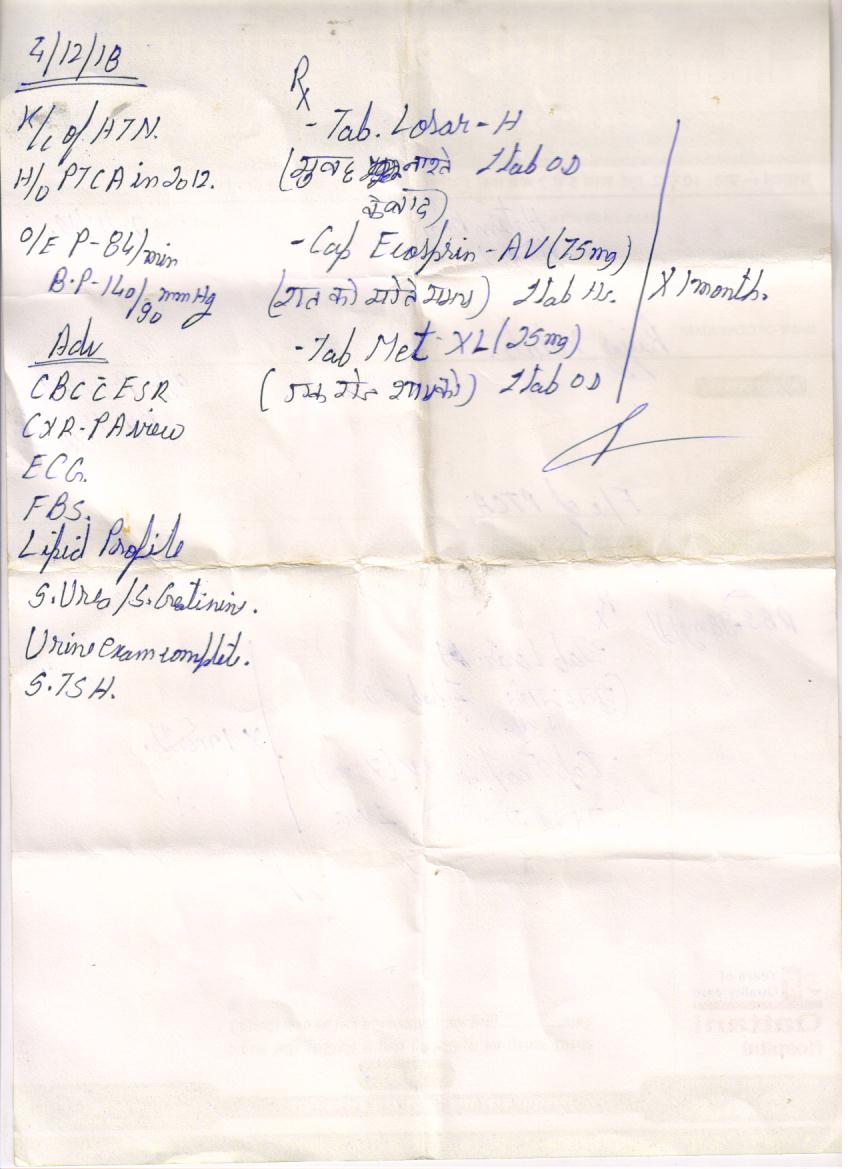 4/12/18
K/c of HTN.
H/O PTCA in 2012.
O/E P-84/min
B.P-140/90 mmHg
Adv
CBC c̄ ESR
CXR-PA view
ECG.
FBS.
Lipid Profile
S.Urea/S.Creatinin.
Urine exam complete.
S.TSH.
Rx
- Tab. Losar-H
(सुबह नाश्ते 1tab OD
के बाद)
- Cap Ecosprin-AV (75mg)
(रात को सोते समय) 1tab Hs.
- Tab Met XL (25mg)
(एक रोज शाम को) 1tab OD
X 1month.